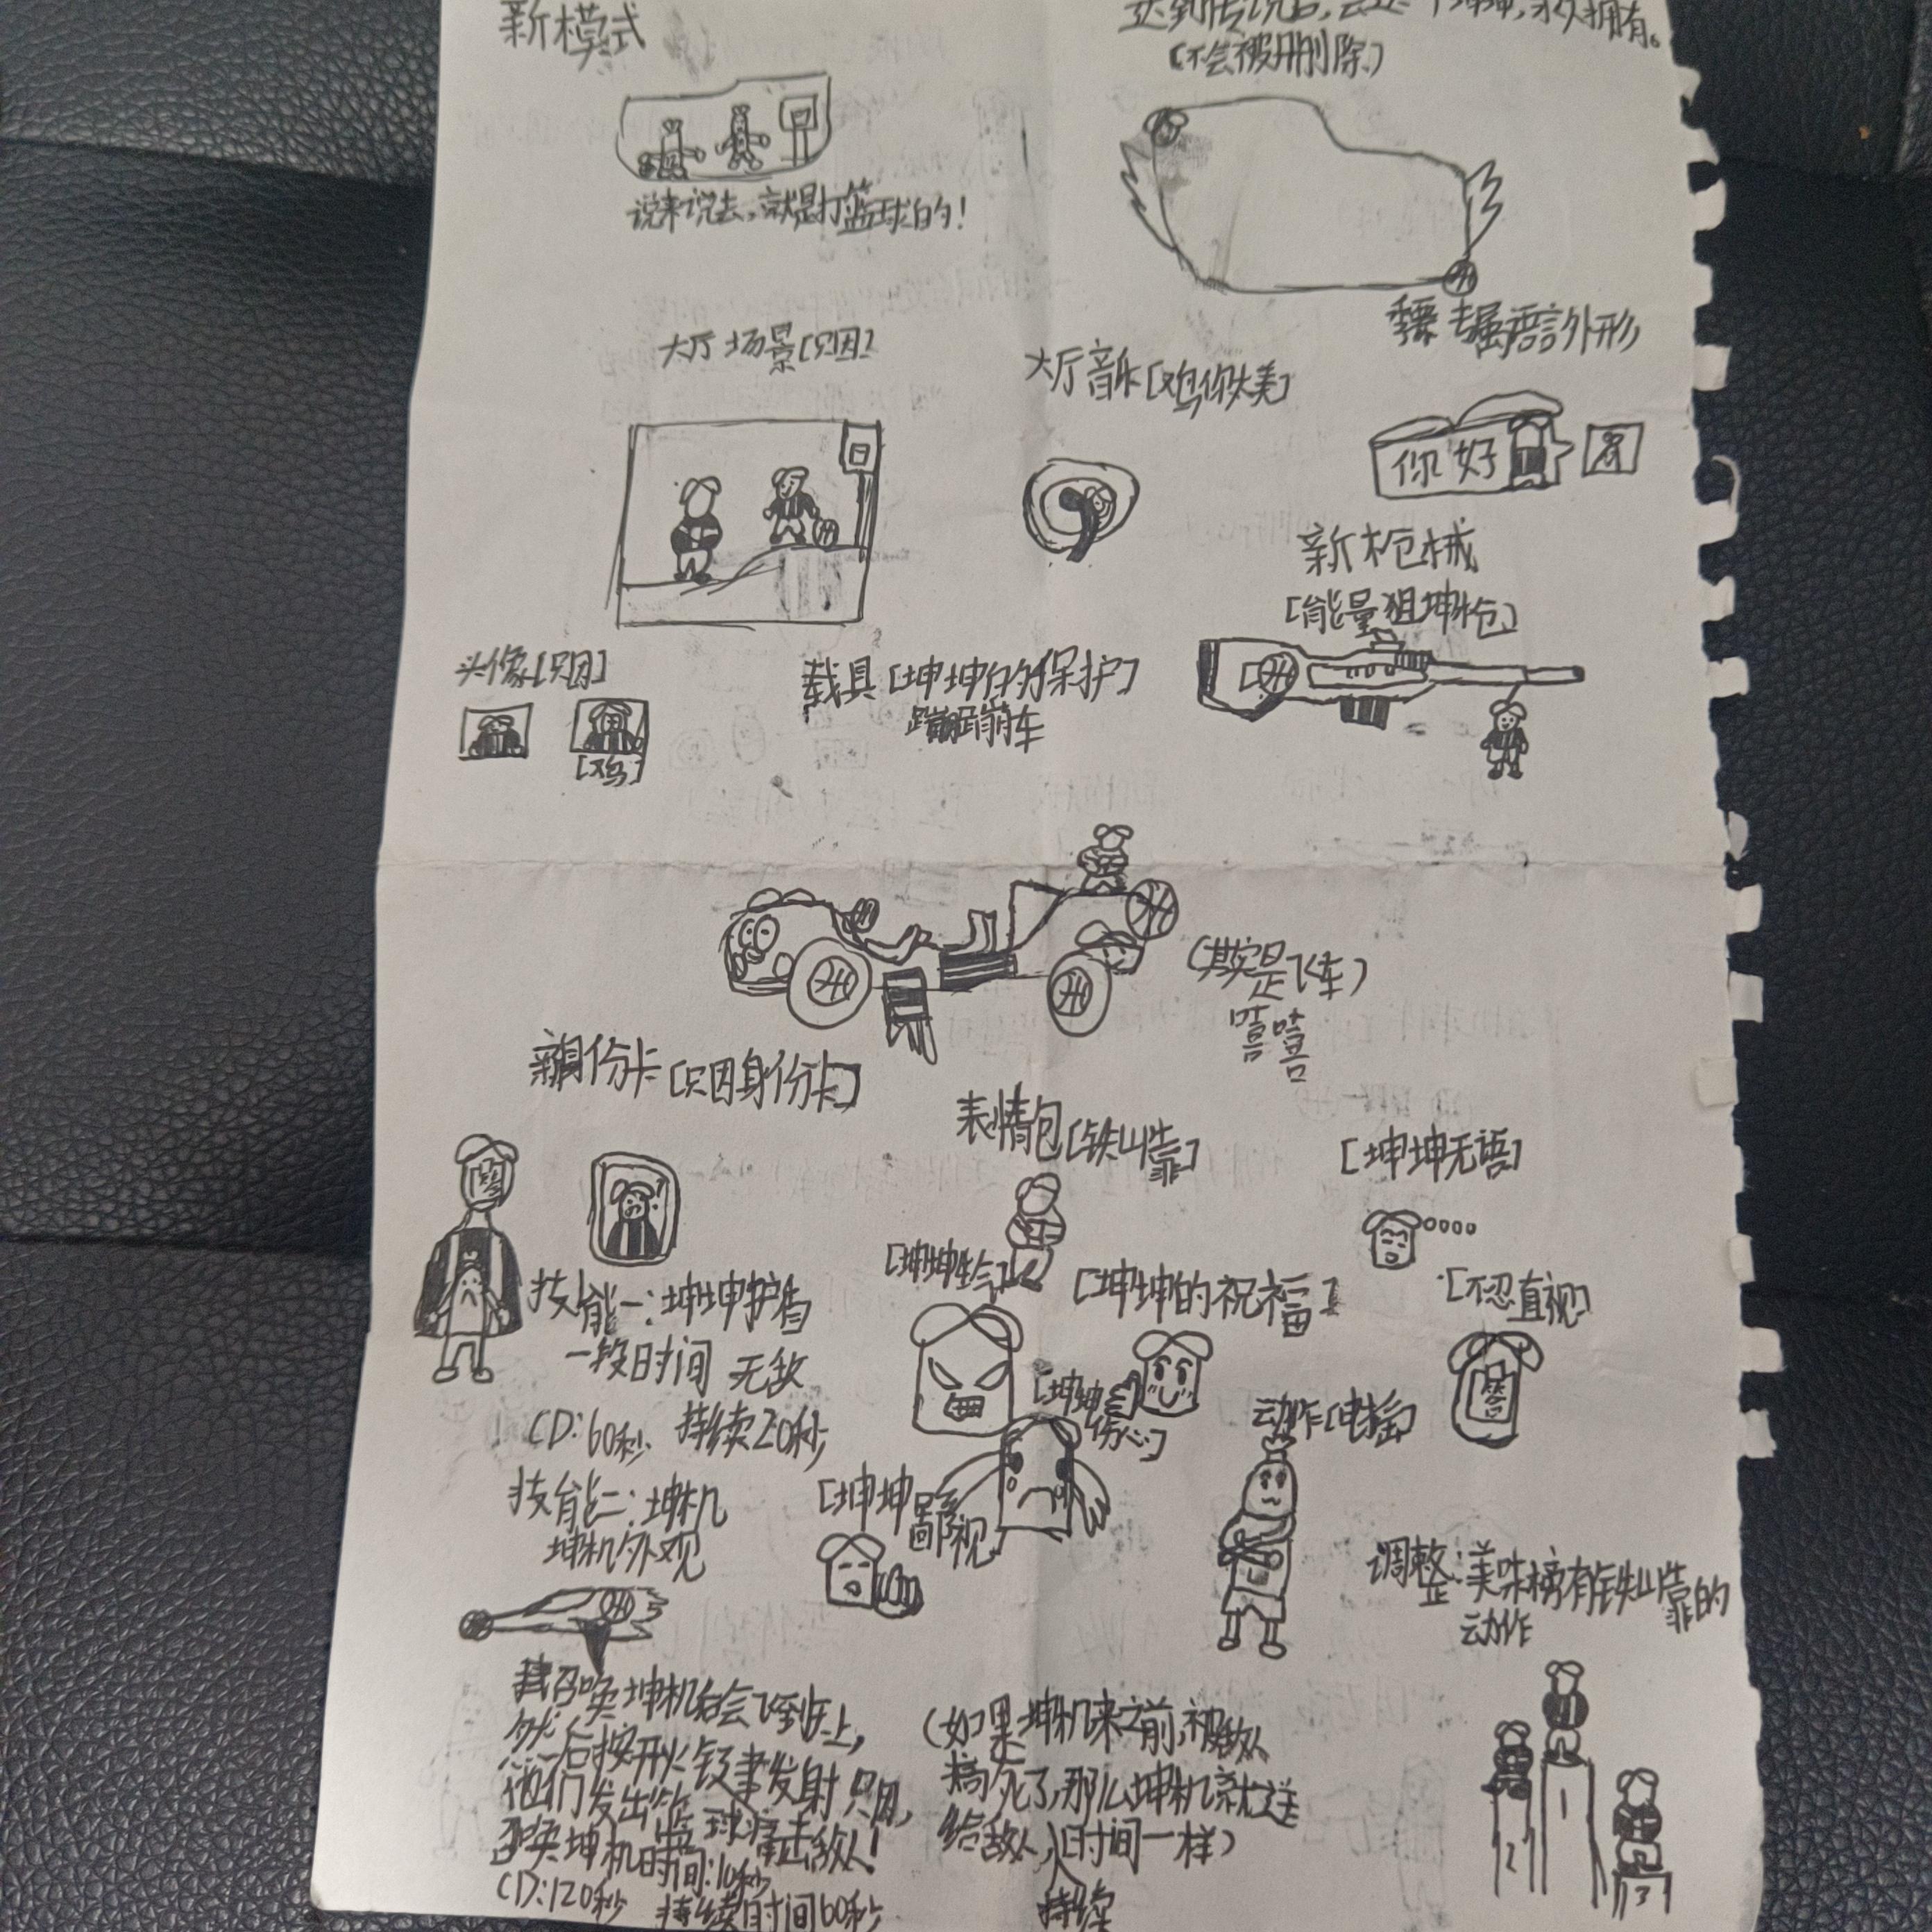 新模式
说来说去,就是打篮球的!
永久拥有。
(不会被删除)
大厅场景[只因]
大厅音乐[鸡你太美]
专属语言外形
你好
新枪械
[能量狙坤枪]
头像[只因]
[鸡]
载具[坤坤的保护]
蹦蹦车
(其实是飞车)
嘻嘻
新身份卡[只因身份卡]
技能一:坤坤护盾
一段时间 无敌
CD:60秒 持续20秒
技能二:坤机
坤机外观
召唤坤机后会飞到坐上,
然后按开火键发射只因,
他们发出篮球痛击敌人!
召唤坤机时间:10秒
CD:120秒 持续时间60秒
表情包[铁山靠]
[坤坤无语]
[坤坤生气]
[坤坤的祝福]
[不忍直视]
答
[坤坤
伤心]
动作[电摇]
[坤坤
鄙视]
调整:美味榜有铁山靠的
动作
(如果坤机来之前,被敌人
搞死了,那么坤机就送
给敌人,时间一样)
持续
2
1
3